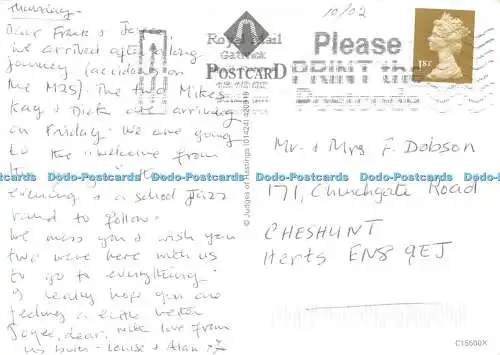 Thursday.
Dear Frank & Joyce,
we arrived after a long
journey (accident on
the M25). The two Mikes
Kay & Dick are arriving
on Friday. We are going
to the "welcome from
the Mayor" this
evening & a school Jazz
band to follow.
We miss you & wish you
two were here with us
to go to everything.
I really hope you are
feeling a little better
Joyce, dear, with love from
us both - Louise & Alan
10/02
Royal Mail
Gatwick
POSTCARD
Please
PRINT the
Postcode
1ST
© Judges of Hastings (01424) 420919
Mr. & Mrs F. Dobson
171, Churchgate Road
CHESHUNT
Herts EN8 9EJ
Dodo-Postcards Dodo-Postcards Dodo-Postcards Dodo-Postcards Dodo-Postcards Dodo-Postcards
C15500X